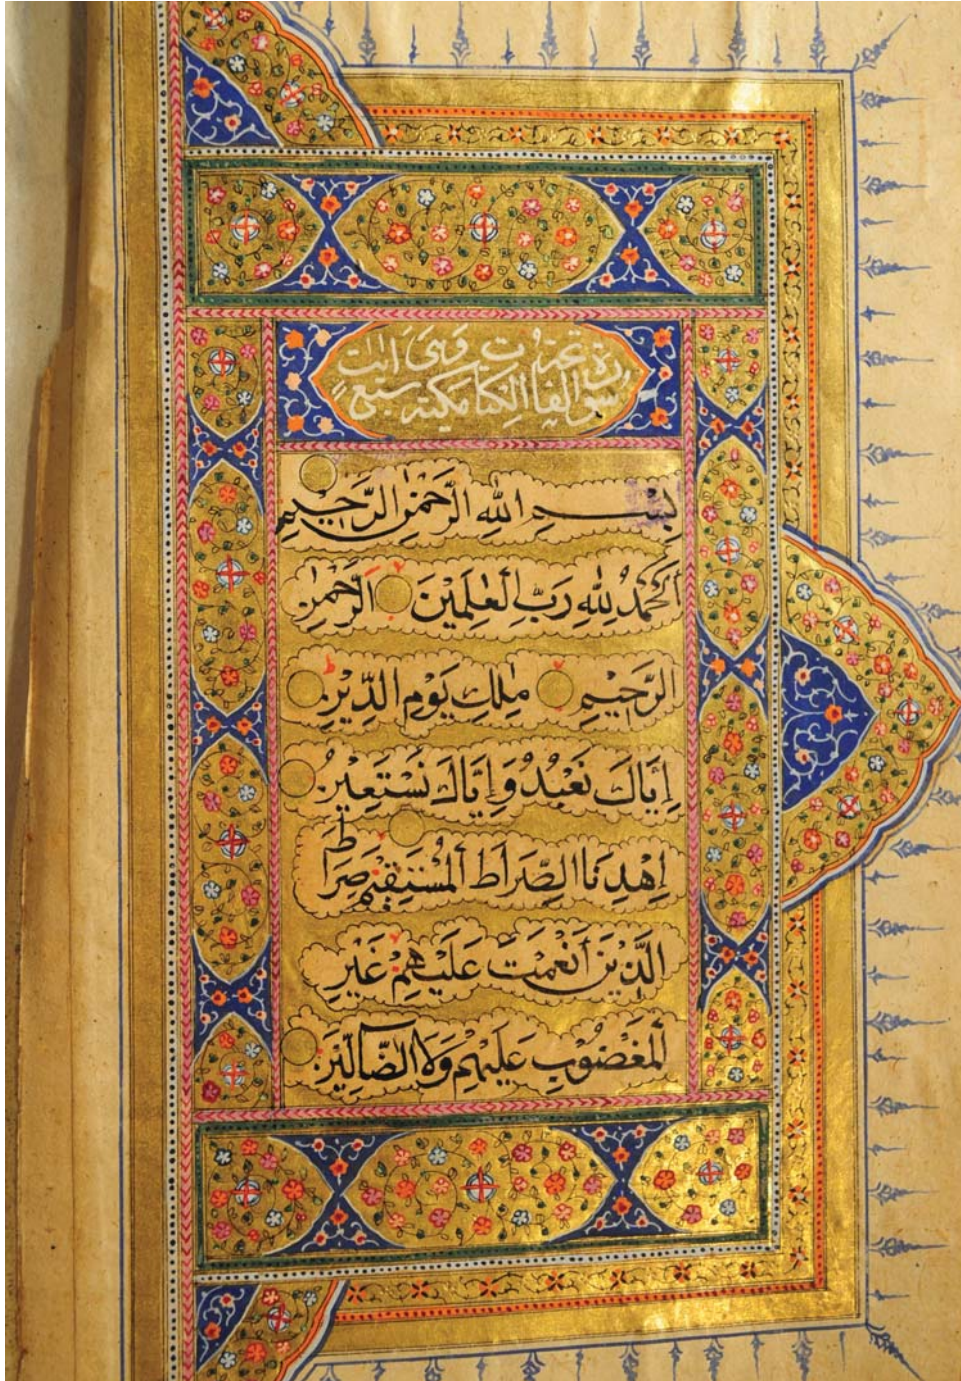 سورة فاتحة الكتاب مكية وهي سبع ايات
بِسْمِ اللهِ الرَّحْمٰنِ الرَّحِيْمِ
اَلْحَمْدُ لِلّٰهِ رَبِّ الْعٰلَمِيْنَ الرَّحْمٰنِ
الرَّحِيْمِ مٰلِكِ يَوْمِ الدِّيْنِ
اِيَّاكَ نَعْبُدُ وَاِيَّاكَ نَسْتَعِيْنُ
اِهْدِنَا الصِّرَاطَ الْمُسْتَقِيْمَ صِرَاطَ
الَّذِيْنَ اَنْعَمْتَ عَلَيْهِمْ غَيْرِ
الْمَغْضُوْبِ عَلَيْهِمْ وَلَا الضَّالِّيْنَ